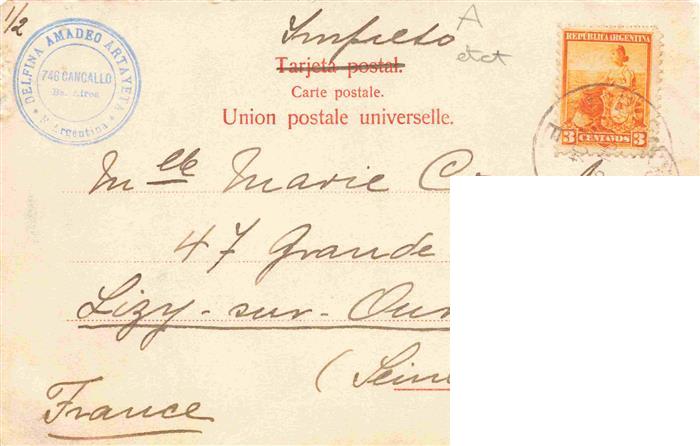 1/2
DELFINA AMADEO ARTAYETA
746 CANGALLO
Bs. Aires
R Argentina
Impreso
A
Tarjeta postal.
etct
Carte postale.
Union postale universelle.
REPUBLICA ARGENTINA
3 CENTAVOS 3
Mlle Marie
47 Grande
Lizy-sur-Our
(Seine
France